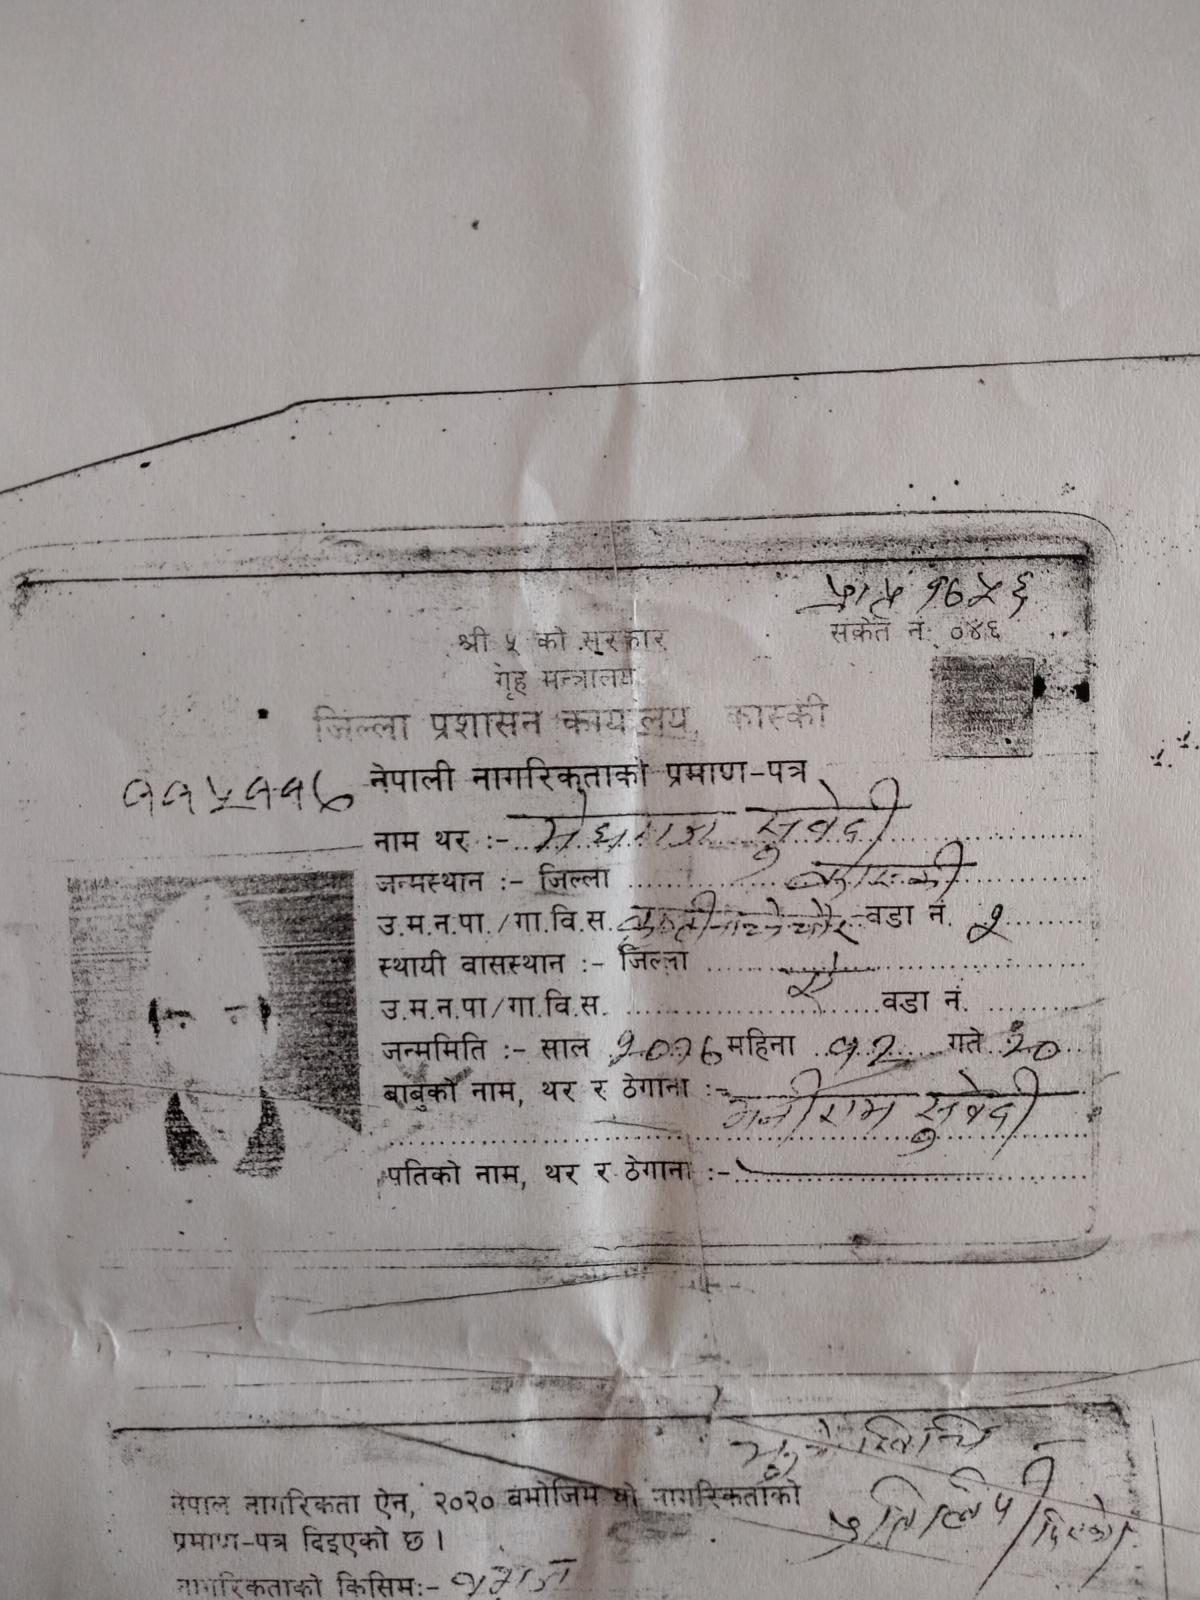 सकेत नं: ०४६
श्री ५ को सरकार
गृह मन्त्रालय
जिल्ला प्रशासन कार्यालय, कास्की
नेपाली नागरिकताको प्रमाण-पत्र
नाम थर :- मेघराज सुवेदी
जन्मस्थान :- जिल्ला कास्की
उ.म.न.पा./गा.वि.स. वडा नं. २
स्थायी वासस्थान :- जिल्ला
उ.म.न.पा/गा.वि.स. ऐ वडा नं.
जन्ममिति :- साल २०१६ महिना १२ गते २०
बाबुको नाम, थर र ठेगाना :- मनीराम सुवेदी
पतिको नाम, थर र ठेगाना :-
प्रतिलिपी दिएको
नेपाल नागरिकता ऐन, २०२० बमोजिम यो नागरिकताको
प्रमाण-पत्र दिइएको छ ।
नागरिकताको किसिम:- वंशज